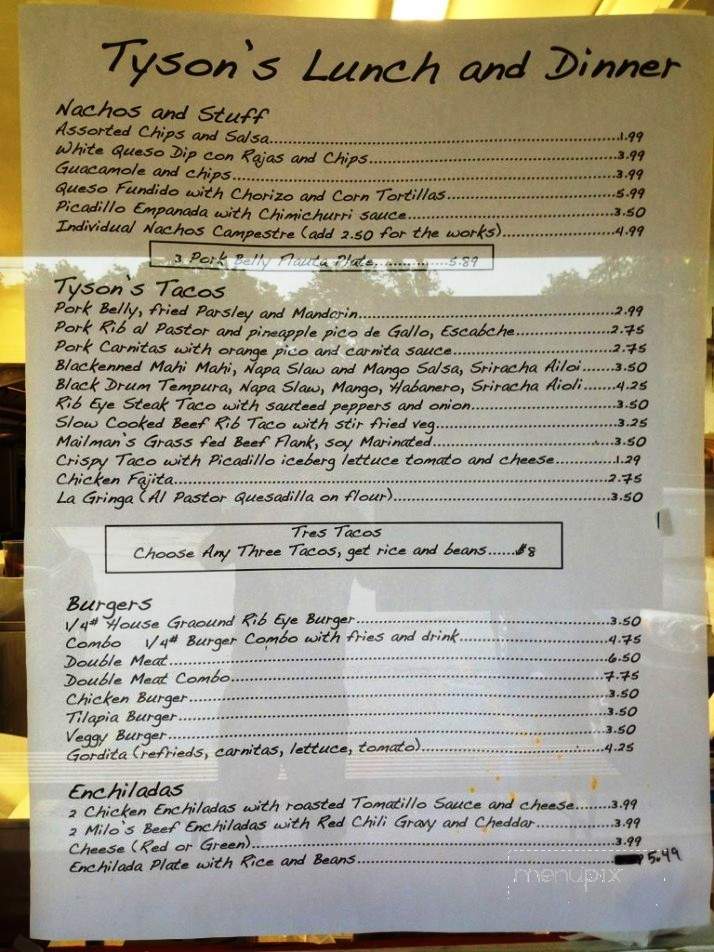 Tyson's Lunch and Dinner
Nachos and Stuff
Assorted Chips and Salsa...1.99
White Queso Dip con Rajas and Chips...3.99
Guacamole and chips...3.99
Queso Fundido with Chorizo and Corn Tortillas...5.99
Picadillo Empanada with Chimichurri sauce...3.50
Individual Nachos Campestre (add 2.50 for the works)...4.99
3 Pork Belly Flauta Plate...5.89
Tyson's Tacos
Pork Belly, fried Parsley and Mandorin...2.99
Pork Rib al Pastor and pineapple pico de Gallo, Escabche...2.75
Pork Carnitas with orange pico and carnita sauce...2.75
Blackenned Mahi Mahi, Napa Slaw and Mango Salsa, Sriracha Ailoi...3.50
Black Drum Tempura, Napa Slaw, Mango, Habanero, Sriracha Aioli...4.25
Rib Eye Steak Taco with sauteed peppers and onion...3.50
Slow Cooked Beef Rib Taco with stir fried veg...3.25
Mailman's Grass fed Beef Flank, soy Marinated...3.50
Crispy Taco with Picadillo iceberg lettuce tomato and cheese...1.29
Chicken Fajita...2.75
La Gringa (Al Pastor Quesadilla on flour)...3.50
Tres Tacos
Choose Any Three Tacos, get rice and beans......$8
Burgers
1/4# House Graound Rib Eye Burger...3.50
Combo 1/4# Burger Combo with fries and drink...4.75
Double Meat...6.50
Double Meat Combo...7.75
Chicken Burger...3.50
Tilapia Burger...3.50
Veggy Burger...3.50
Gordita (refrieds, carnitas, lettuce, tomato)...4.25
Enchiladas
2 Chicken Enchiladas with roasted Tomatillo Sauce and cheese...3.99
2 Milo's Beef Enchiladas with Red Chili Gravy and Cheddar...3.99
Cheese (Red or Green)...3.99
Enchilada Plate with Rice and Beans...5.49
menupix